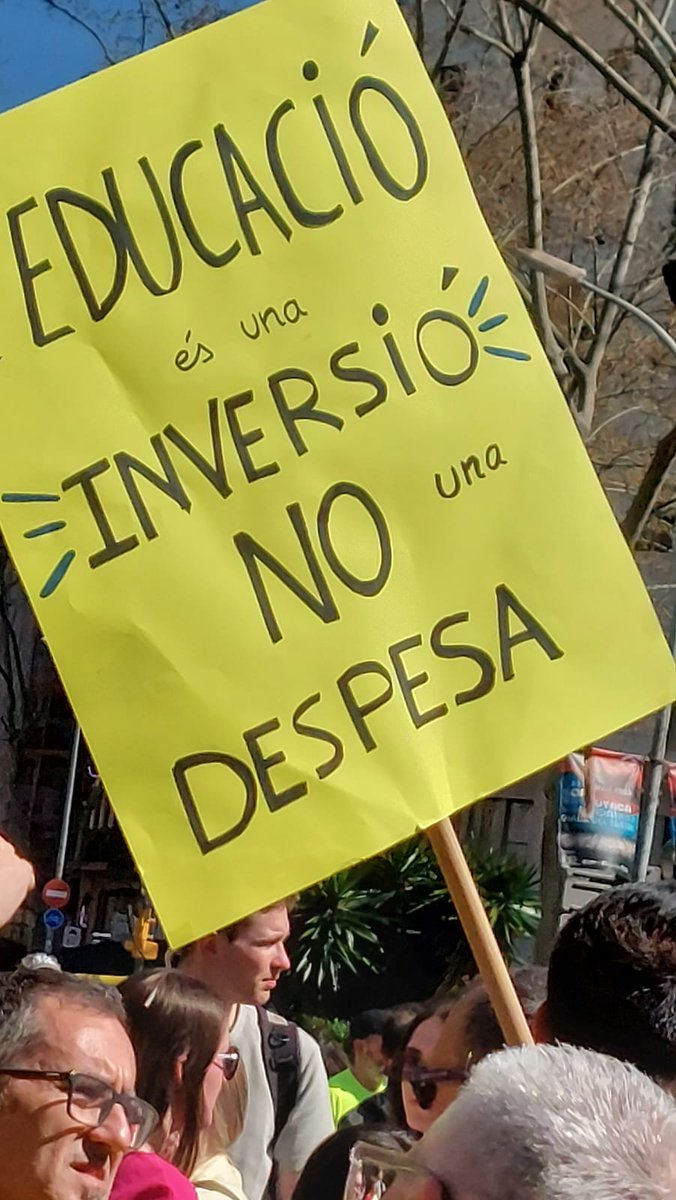 EDUCACIÓ
és una
INVERSIÓ
NO una
DESPESA